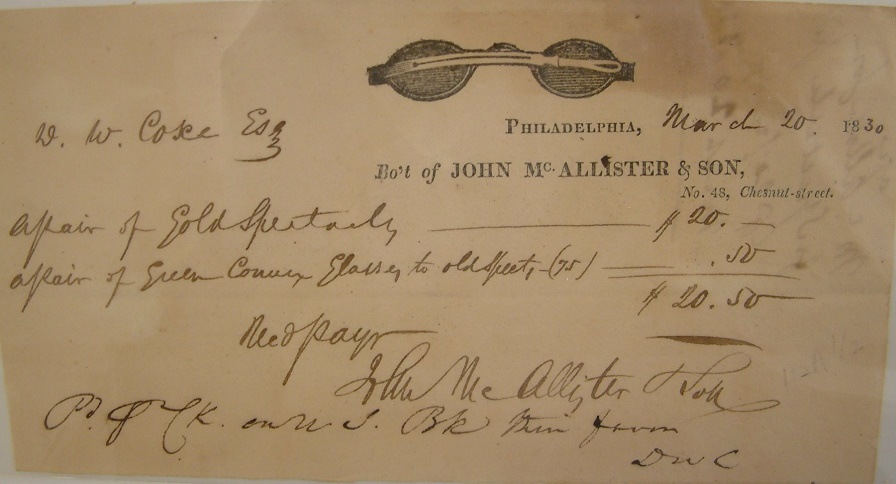 D. W. Coxe Esq
PHILADELPHIA, March 20. 1830
Bo't of JOHN Mc. ALLISTER & SON,
No. 48, Chesnut-street.
A pair of Gold Spectacles $ 20. —
A pair of Green Convex Glasses to old Spects, (75) .50
$ 20.50
Recd payt
John McAllister & Son
Pd. Ck. on U S. Bk their favor
D W C